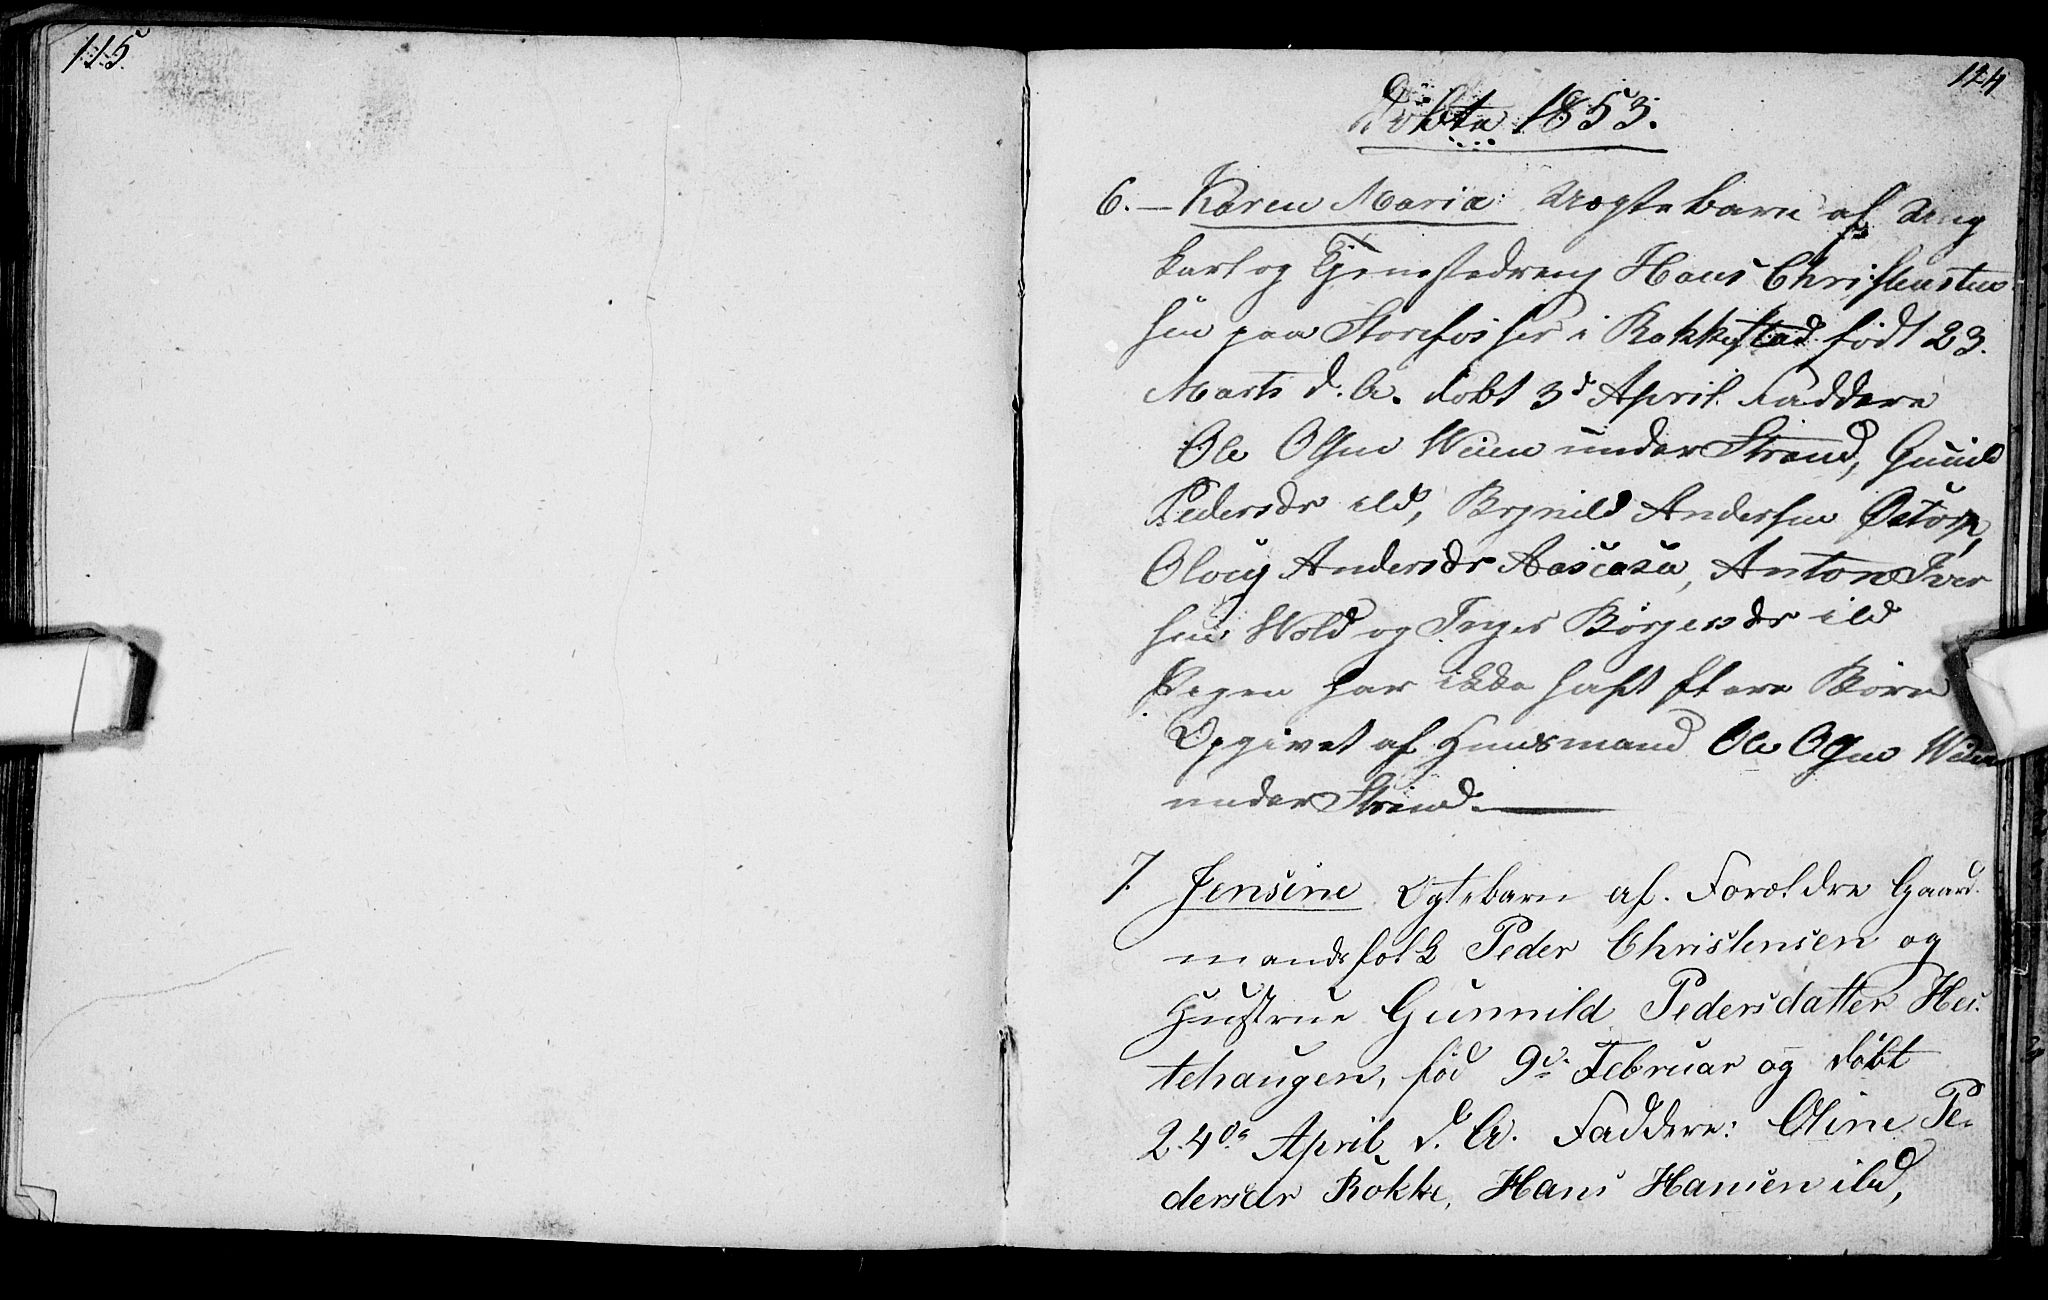 115.
114
Døbte 1853.
6. — Karen Maria: Uægtebarn af Ung
karl og Tjenestedreng Hans Christensten
sen paa Storefosser i Rakkestad født 23.
Marts d. A. døbt 3d April. Faddere
Ole Olsen Wiien under Strand, Gunild
Pedersdr ibd, Brynild Andersen Østorp,
Oloug Andersdr Aaseasa, Anton Iver
sen Wold og Inger Børgersdr ibd
Pigen har ikke haft flere Børn
Opgivet af Huusmand Ole Olsen Wiien
under Strand. —
7. Jensine Ægtebarn af Forældre Gaard.
mandsfolk Peder Christensen og
Hustrue Gunnild Pedersdatter Hes.
tehaugen, fød 9de Februar og døbt
24de April d. A. Faddere: Oline Pe-
dersdr Rokke, Hans Hansen ibd,